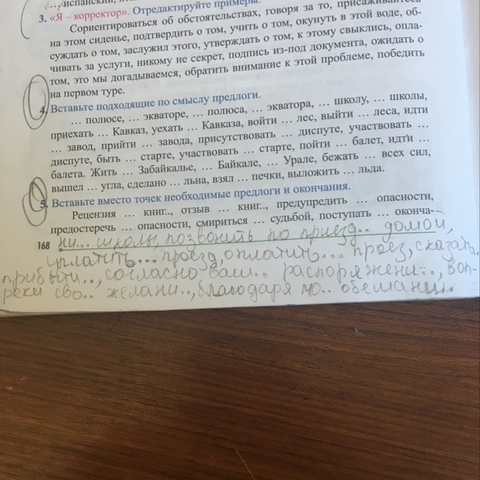 испанский,
3. «Я – корректор». Отредактируйте примеры.
Сориентироваться об обстоятельствах, говоря за то, присаживайтесь
на этом сиденье, подтвердить о том, учить о том, окунуть в этой воде, об-
суждать о том, заслужил этого, утверждать о том, к этому свыклись, опла-
чивать за услуги, никому не секрет, подпись из-под документа, ожидать о
том, это мы догадываемся, обратить внимание к этой проблеме, победить
на первом туре.
4. Вставьте подходящие по смыслу предлоги.
... полюсе, ... экваторе, ... полюса, ... экватора, ... школу, ... школы,
приехать ... Кавказ, уехать ... Кавказа, войти ... лес, выйти ... леса, идти
... завод, прийти ... завода, присутствовать ... диспуте, участвовать ...
диспуте, быть ... старте, участвовать ... старте, пойти ... балет, идти ...
балета. Жить ... Забайкалье, ... Байкале, ... Урале, бежать ... всех сил,
вышел ... угла, сделано ... льна, взял ... печки, выложить ... льда.
5. Вставьте вместо точек необходимые предлоги и окончания.
Рецензия ... книг.., отзыв ... книг.., предупредить ... опасности,
предостеречь ... опасности, смириться ... судьбой, поступать ... оконча-
168 ни.. школы, позвонить по приезд.. домой,
уплатить... проезд, оплатить... проезд, сказать
прибыти.., согласно ваш.. распоряжени.., воп-
реки сво.. желани.., благодаря мо.. обаяни..